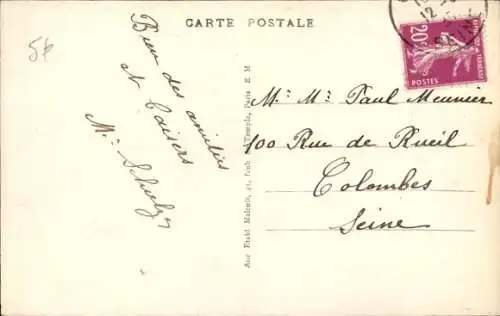 CARTE POSTALE
5f
Bien des amitiés
et baisers
Mme Schulzer
20c
POSTES
12
SEINE
Mr Me Paul Meunier
100 Rue de Rueil
Colombes
Seine
Aux Etabl Malcuit, 41, faub. du Temple, Paris E. M.